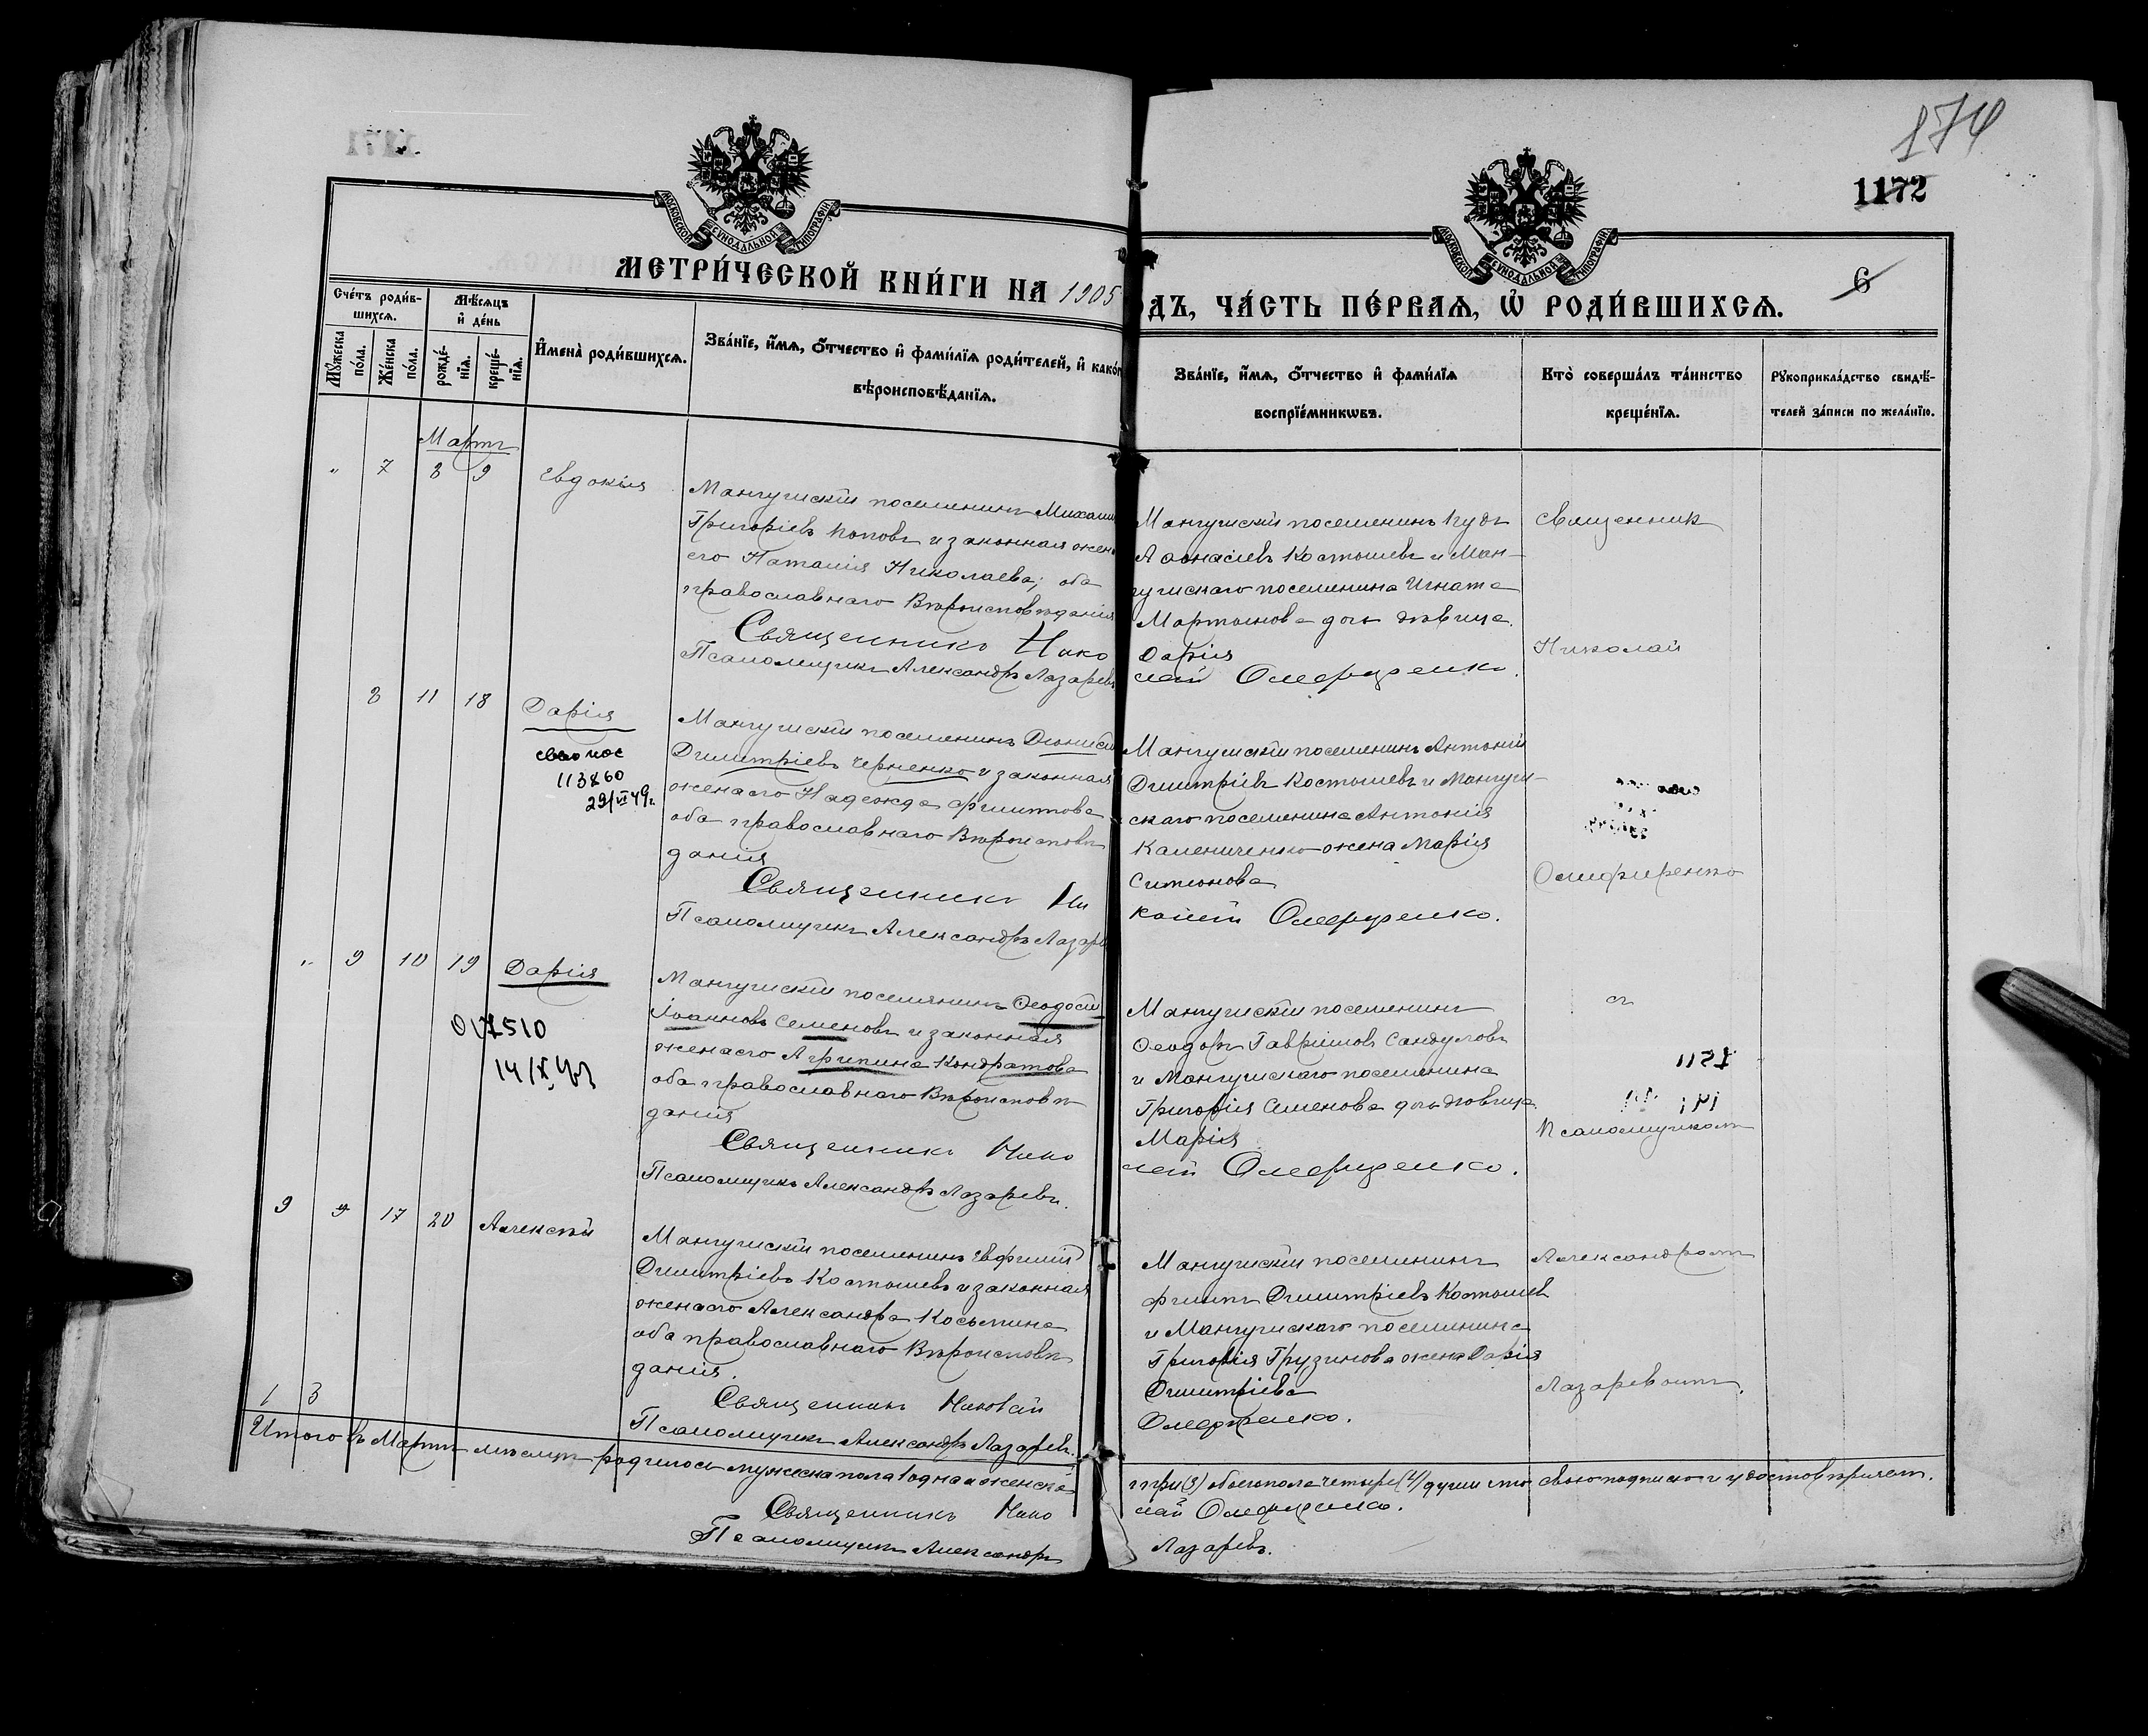 174
1172
6
МОСКОВСКОЙ СѴНОДАЛЬНОЙ ТИПОГРАФІИ
МОСКОВСКОЙ СѴНОДАЛЬНОЙ ТИПОГРАФІИ
МЕТРИ́ЧЕСКОЙ КНИ́ГИ НА 1905
ОДЪ, ЧА́СТЬ ПЕ́РВАѦ, Ѡ҆ РОДИ́ВШИХСѦ.
Сче́тъ роди́в-
шихсѧ.
Мѣ́сѧцъ
и҆ де́нь
Мꙋ́жеска
по́ла.
Же́нска
по́ла.
рожде́-
нїѧ.
креще́-
нїѧ.
И҆мена̀ роди́вшихсѧ.
Зва́нїе, и҆́мѧ, ѻ҆́тчество и҆ фами́лїѧ роди́телей, и҆ како́г
вѣроисповѣ́данїѧ.
Зва́нїе, и҆́мѧ, ѻ҆́тчество и҆ фами́лїѧ
воспрїе́мникѡвъ.
Кто̀ соверша́лъ та́инство
креще́нїѧ.
Рꙋкоприкла́дство свидѣ́-
телей за́писи по жела́нїю.
Мартъ
" 7 8 9 Евдокія
Мангушскій поселенинъ Михаил
Григоріевъ Поповъ и законная жен
его Наталія Николаева; оба
православнаго Вѣроисповѣданія
Священникъ Нико
Псаломщикъ Александръ Лазаревъ
Мангушскій поселенинъ
Аѳанасіевъ Костышевъ и Ман-
гушскаго поселенина Игната
Мартынова дочь дѣвица
Дарія
лай Олефиренко.
Священник
Николай
8 11 18 Дарія
113860
29/VI 49г.
Мангушскій поселенинъ Діонисій
Димитріевъ Черненко и законная
жена его Надежда Филиппова
оба православнаго Вѣроисповѣ
данія
Священникъ Ни
Псаломщикъ Александръ Лазаре
Мангушскій поселенинъ Антоній
Димитріевъ Костышевъ и Мангуш-
скаго поселенина Антонія
Калениченко жена Марія
Симонова
колай Олефиренко.
Олефиренко
" 9 10 19 Дарія
14/X
Мангушскій поселянинъ Ѳеодосій
Іоанновъ Семеновъ и законная
жена его Агрипина Кондратова
оба православнаго Вѣроисповѣ
данія
Священникъ Нико
Псаломщикъ Александръ Лазаревъ.
Мангушскій поселенинъ
Ѳеодоръ Гавріиловъ Сандуловъ
и Мангушскаго поселенина
Григорія Семенова дочь дѣвица
Марія
лай Олефиренко.
съ
Псаломщикомъ
9 " 17 20 Алексѣй
Мангушскій поселенинъ Евфимій
Димитріевъ Костышевъ и законная
жена его Александра Косьмина
оба православнаго Вѣроисповѣ
данія.
Священникъ Николай
Псаломщикъ Александръ Лазаревъ.
Мангушскій поселенинъ
Филипъ Димитріевъ Костышев
и Мангушскаго поселенина
Григорія Грузинова жена Дарія
Димитріева
Олефиренко.
Александромъ
Лазаревымъ.
1 3
Итого въ Мартѣ мѣсяцѣ родилось мужеска пола 1 одна а женска
три (3) обоего пола четыре (4) души что своею подписью и удостовѣряем.
Священникъ Нико
лай Олефиренко.
Псаломщикъ Александръ
Лазаревъ.